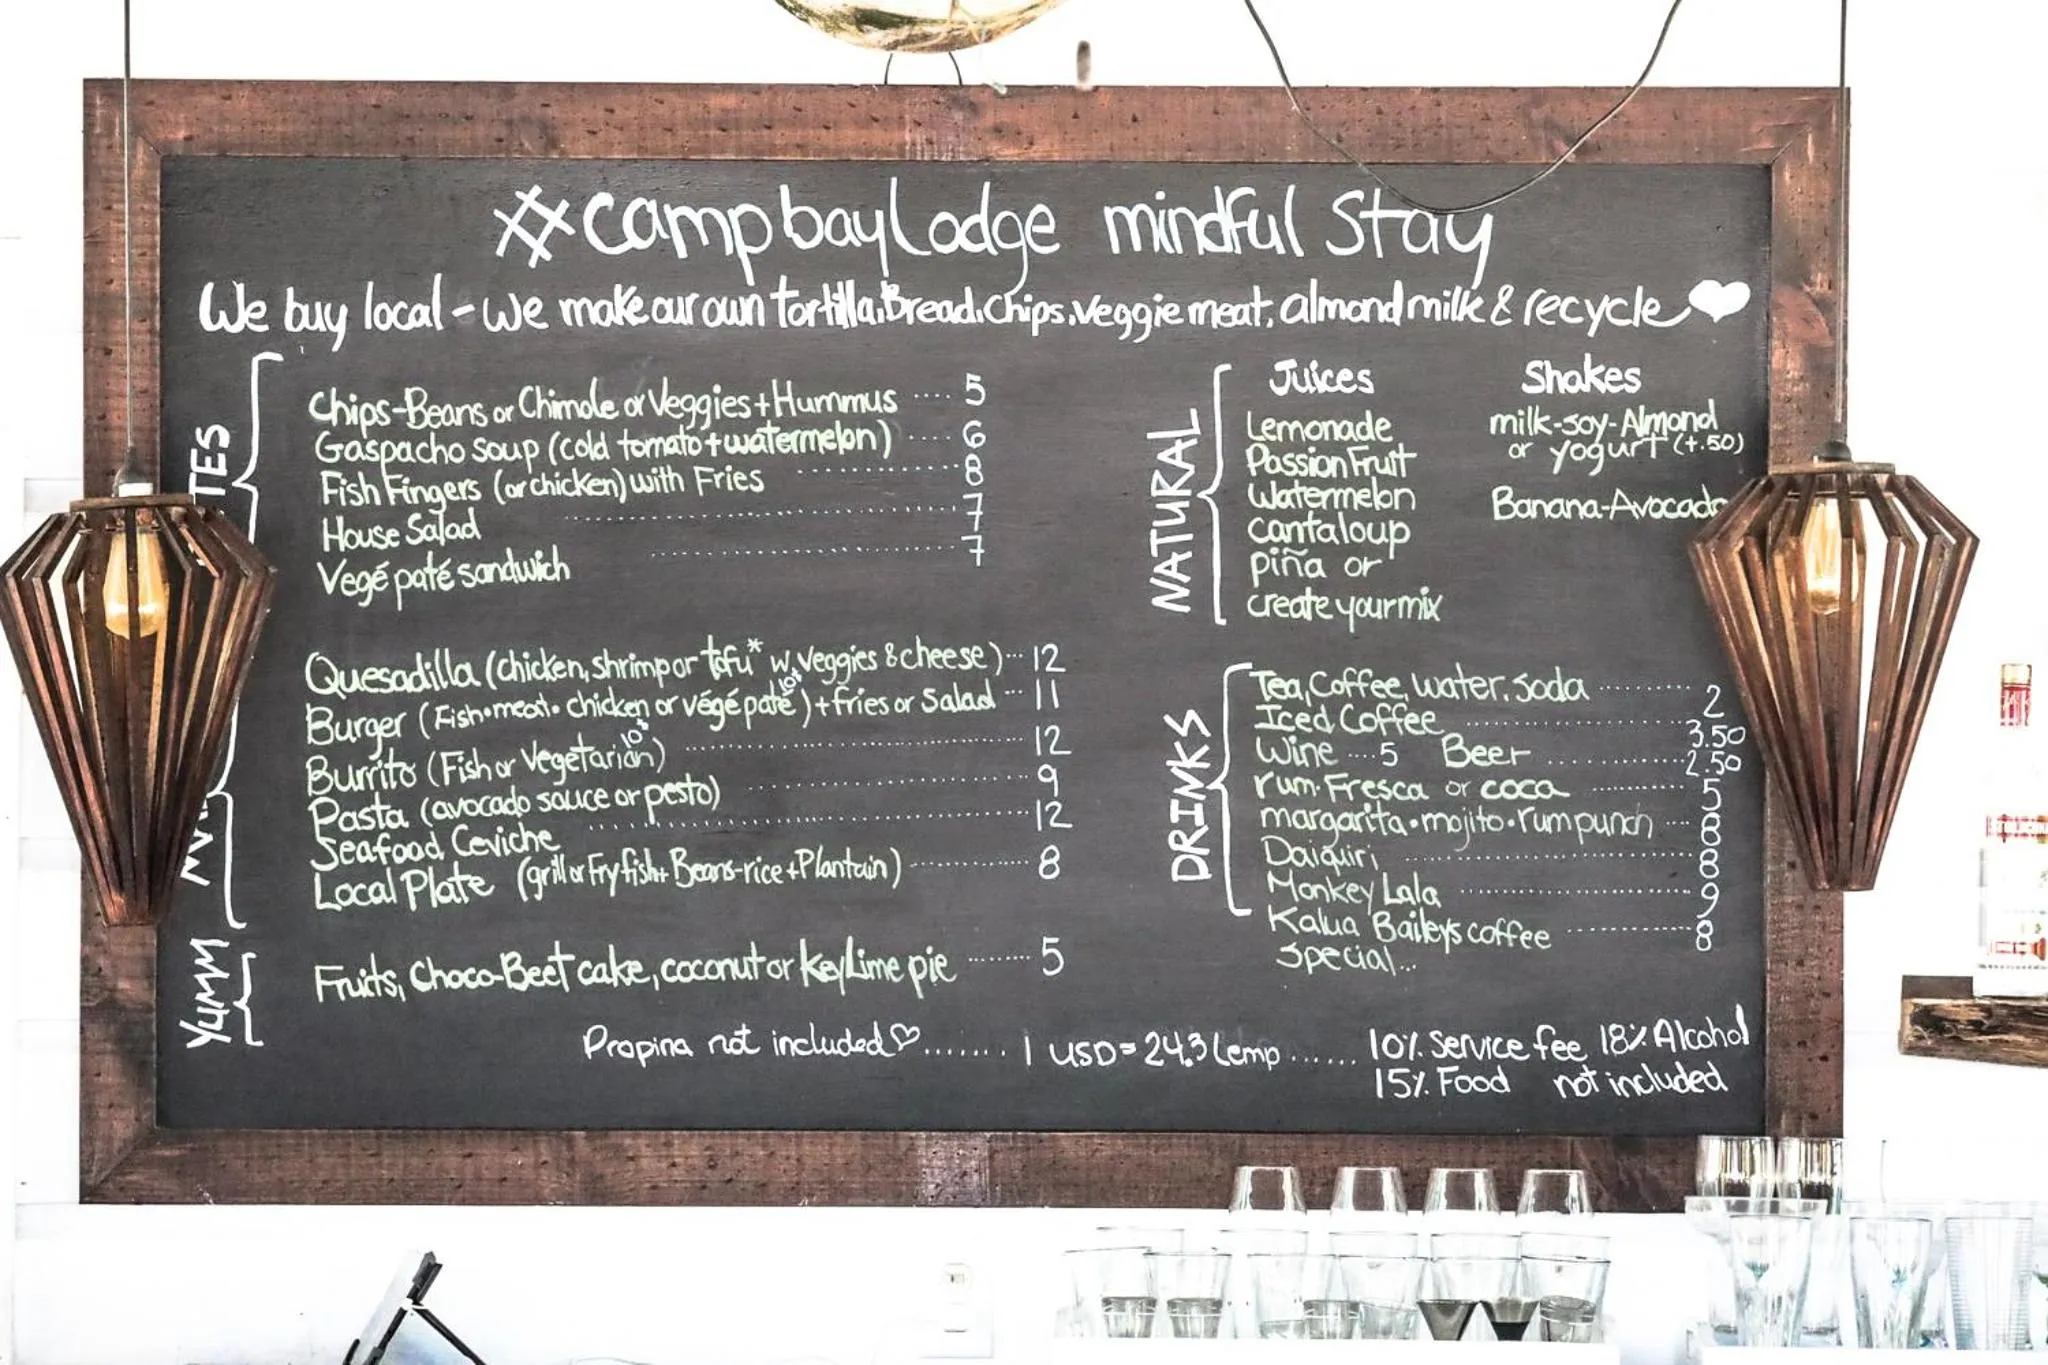 #campbayLodge mindful Stay
We buy local - we make our own tortilla, Bread, Chips, veggie meat, almond milk & recycle
Chips-Beans or Chimole or Veggies + Hummus .... 5
Gaspacho soup (cold tomato + watermelon) .... 6
Fish Fingers (or chicken) with Fries ........ 8
House Salad ........ 7
Vegé paté sandwich ........ 7
Quesadilla (chicken, shrimp or tofu* w. veggies & cheese) ... 12
Burger (Fish • meat • chicken or végé paté 10$) + fries or Salad ... 11
Burrito (Fish or Vegetarian 10$) ........ 12
Pasta (avocado sauce or pesto) ........ 9
Seafood Ceviche ........ 12
Local Plate (grill or Fry fish + Beans-rice + Plantain) ........ 8
YUMM
Fruits, Choco-Beet cake, coconut or Key Lime pie ....... 5
NATURAL
Juices
Lemonade
Passion Fruit
Watermelon
cantaloup
piña or
create your mix
Shakes
milk-soy-Almond
or yogurt (+.50)
Banana-Avocado
DRINKS
Tea, Coffee, water, Soda ........ 2
Iced Coffee ........ 3.50
Wine ... 5 Beer ........ 2.50
rum. Fresca or coca ........ 5
margarita • mojito • rum punch ... 8
Daiquiri ........ 8
Monkey Lala ........ 9
Kalua Baileys coffee ........ 8
Special...
Propina not included ....... 1 USD = 24.3 Lemp ...... 10% Service fee 18% Alcohol
15% Food not included